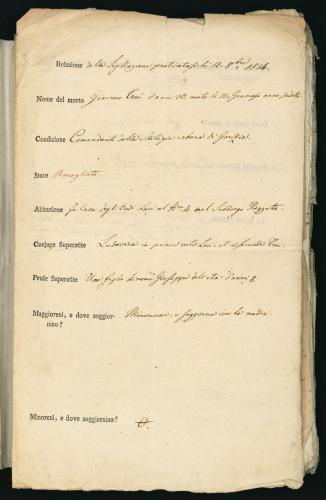 Relazione della Sigillazione praticatasi li 12. 8bre 1814.
Nome del morto Giacomo d'anni 38. morto li 12. anno sudto.
Condizione Comandante della Milizia urbana di Gorizia.
Stato Amogliato.
Abitazione in Casa degli Eredi al No 4. nel
Conjuge Superstite Ludovica in prime nata ed in seconde
Prole Superstite Un figlio di nome Giuseppe dell'età d'anni 8.
Maggioreni, e dove soggior-
nino? Minorenne, e soggiorna con la madre.
Minoreni, e dove soggiornino?